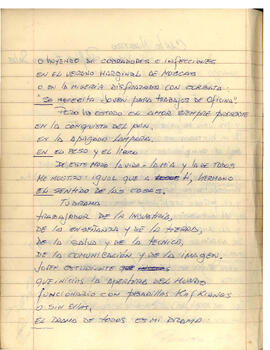 O HUYENDO DE COBRADORES E INFECCIONES
EN EL VERANO MARGINAL DE MOSCAS
O EN LA MISERIA DISFRAZADA CON CORBATA:
"SE NECESITA JOVEN PARA TRABAJOS DE OFICINA".
PERO HA ESTADO EL AMOR SIEMPRE PRESENTE
EN LA CONQUISTA DEL PAN,
EN LA APAGADA LAMPARA
EN EL BESO Y EL LIBRO
DE ESTE MODO LA VIDA LA MIA Y LA DE TODOS
ME MOSTRO IGUAL QUE A TI, HERMANO
EL SENTIDO DE LAS COSAS.
TU DRAMA
TRABAJADOR DE LA INDUSTRIA,
DE LA ENSEÑANZA Y DE LA TIERRA,
DE LA SALUD Y DE LA TECNICA,
DE LA COMUNICACION Y DE LA IMAGEN,
JOVEN ESTUDIANTE
QUE INICIAS LA APERTURA DEL MUNDO
FUNCIONARIO CON PESADILLAS KAFKIANAS
O SIN ELLAS,
EL DRAMA DE TODOS ES MI DRAMA